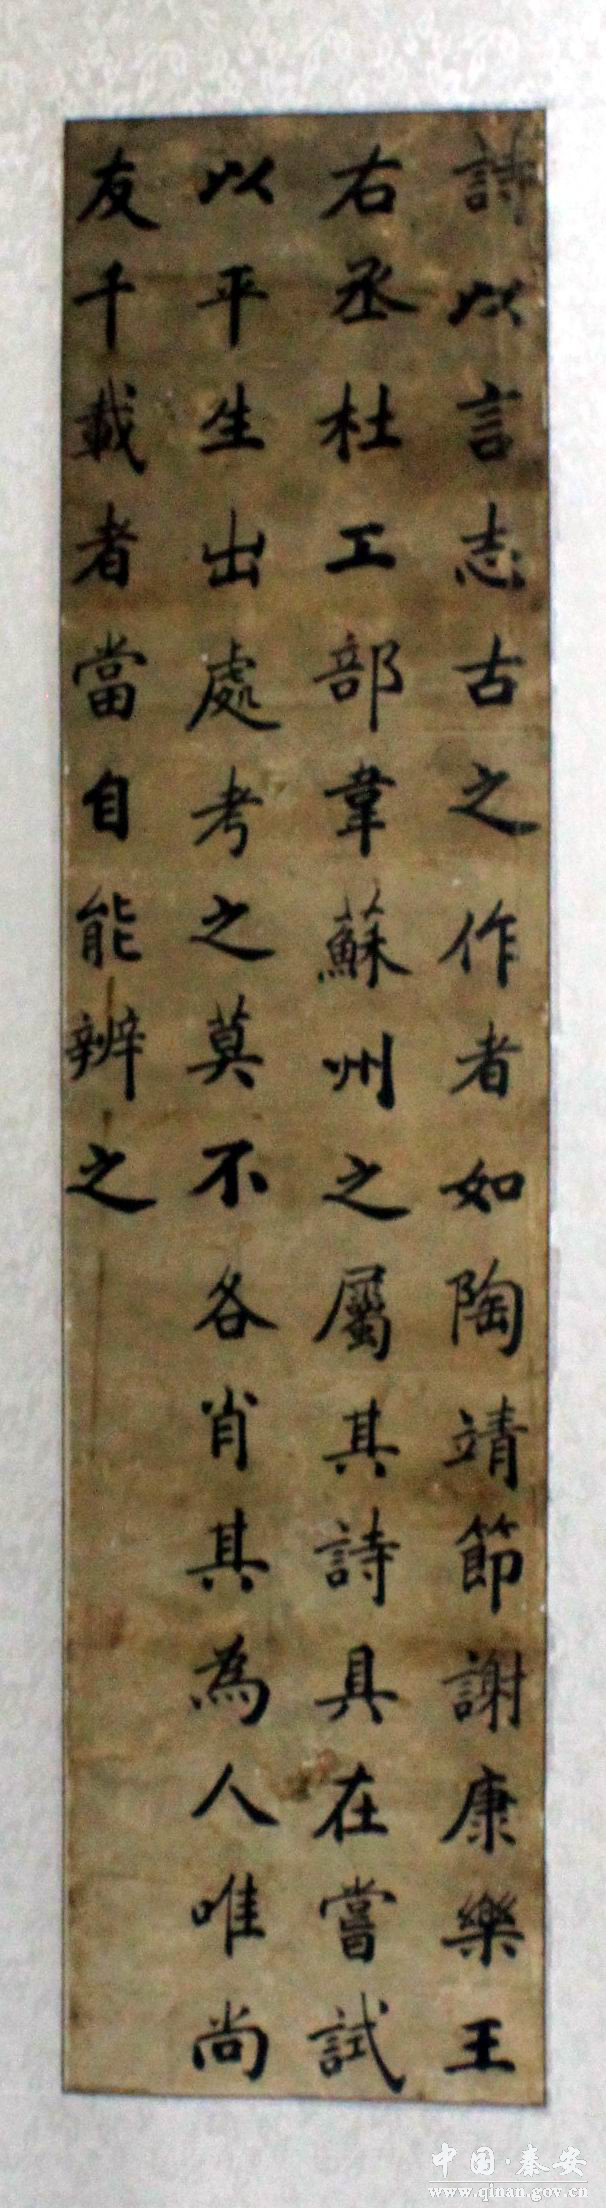 詩以言志古之作者如陶靖節謝康樂王
右丞杜工部韋蘇州之屬其詩具在嘗試
以平生出處考之莫不各肖其為人唯尚
友千載者當自能辨之
中国·秦安
www.qinan.gov.cn